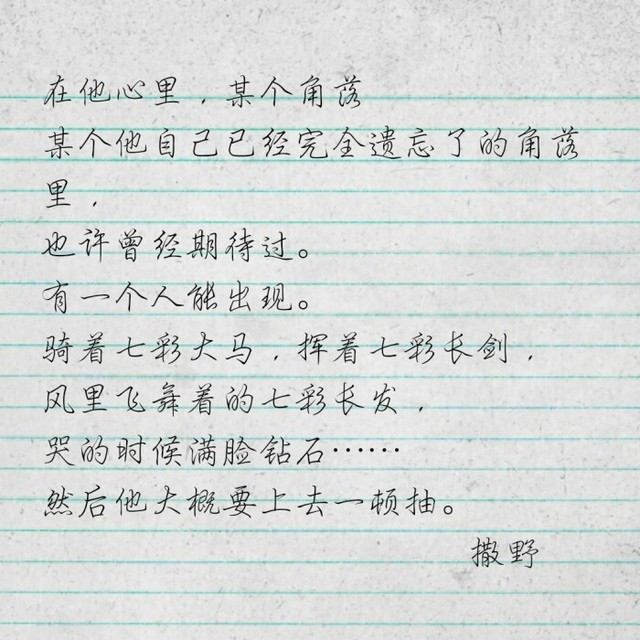 在他心里，某个角落
某个他自己已经完全遗忘了的角落
里，
也许曾经期待过。
有一个人能出现。
骑着七彩大马，挥着七彩长剑，
风里飞舞着的七彩长发，
哭的时候满脸钻石……
然后他大概要上去一顿抽。
撒野